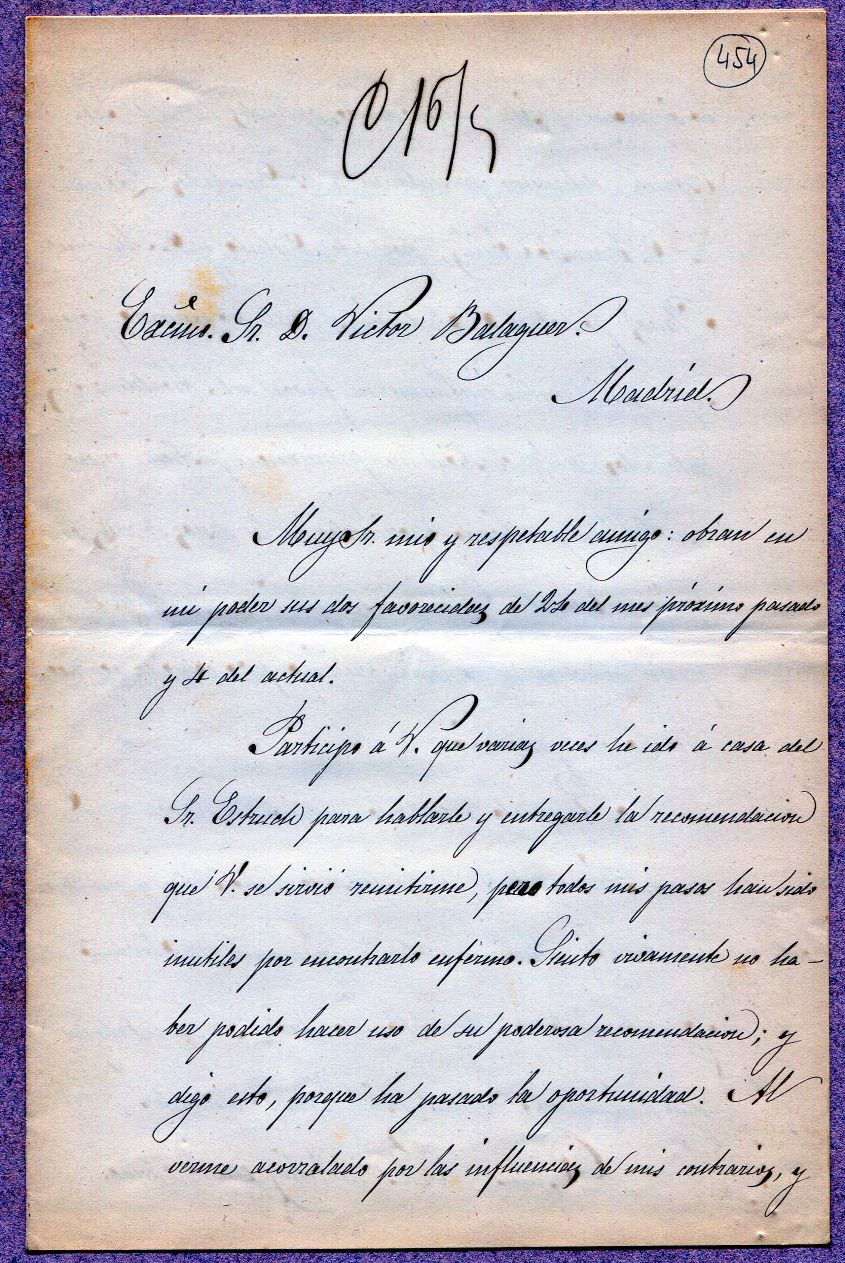 454
C 16/5
Excmo. Sr. D. Victor Balaguer.
Madrid.
Muy Sr. mio y respetable amigo: obran en
mi poder sus dos favorecidas de 24 del mes próximo pasado
y 4 del actual.
Participo á V. que varias veces he ido á casa del
Sr. Estruch para hablarle y entregarle la recomendacion
que V. se sirvió remitirme, pero todos mis pasos han sido
inutiles por encontrarlo enfermo. Siento vivamente no ha-
ber podido hacer uso de su poderosa recomendacion; y
digo esto, porque ha pasado la oportunidad. Al
verme acorralado por las influencias de mis contrarios, y